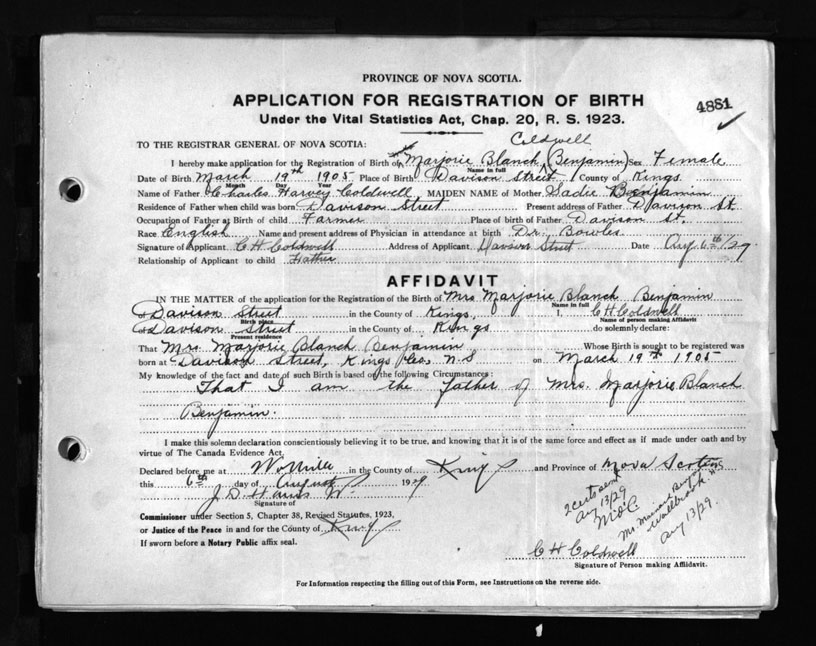 PROVINCE OF NOVA SCOTIA.
APPLICATION FOR REGISTRATION OF BIRTH
4881
Under the Vital Statistics Act, Chap. 20, R. S. 1923.
Coldwell
TO THE REGISTRAR GENERAL OF NOVA SCOTIA:
I hereby make application for the Registration of Birth of Marjorie Blanch (Benjamin) Sex Female
Name in full
Date of Birth March 19th 1905 Place of Birth Davison Street County of Kings
Month Day Year
Name of Father Charles Harvey Coldwell, MAIDEN NAME of Mother Sadie Benjamin
Residence of Father when child was born Davison Street Present address of Father Davison St
Occupation of Father at Birth of child Farmer Place of birth of Father Davison St.
Race English Name and present address of Physician in attendance at birth Dr. Bowles
Signature of Applicant C H Coldwell Address of Applicant Davison Street Date Aug 6th/29
Relationship of Applicant to child Father
AFFIDAVIT
IN THE MATTER of the application for the Registration of the Birth of Mrs Marjorie Blanch Benjamin
Name in full
Davison Street in the County of Kings, I, C H Coldwell
Birth place Name of person making Affidavit
Davison Street in the County of Kings do solemnly declare:
Present residence
That Mrs. Marjorie Blanch Benjamin Whose Birth is sought to be registered was
born at Davison Street, Kings Co. N. S on March 19th 1905
My knowledge of the fact and date of such Birth is based on the following Circumstances:
That I am the father of Mrs. Marjorie Blanch
Benjamin.
I make this solemn declaration conscientiously believing it to be true, and knowing that it is of the same force and effect as if made under oath and by
virtue of The Canada Evidence Act.
Declared before me at in the County of Kings and Province of Nova Scotia
this 6th day of August 1929
J. D. Harris
Signature of
Commissioner under Section 5, Chapter 38, Revised Statutes, 1923,
or Justice of the Peace in and for the County of Kings
If sworn before a Notary Public affix seal.
2 certs sent
Aug 13/29
Wallbrook
Aug 13/29.
C H Coldwell
Signature of Person making Affidavit.
For Information respecting the filling out of this Form, see Instructions on the reverse side.